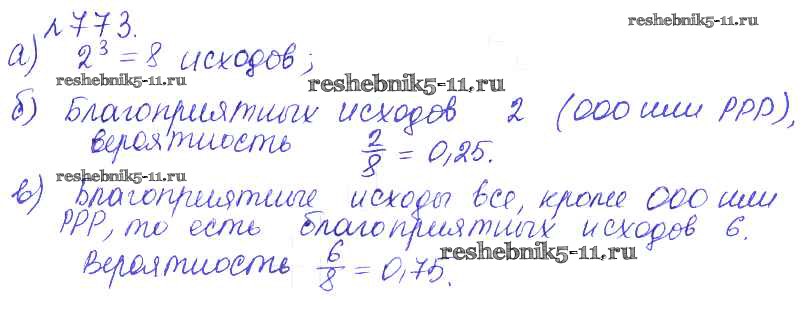 №773.
reshebnik5-11.ru
а) 2³ = 8 исходов;
reshebnik5-11.ru
reshebnik5-11.ru
б) Благоприятных исходов 2 (ООО или РРР),
вероятность 2/8 = 0,25.
reshebnik5-11.ru
в) Благоприятные исходы все, кроме ООО или
РРР, то есть благоприятных исходов 6.
Вероятность 6/8 = 0,75.
reshebnik5-11.ru